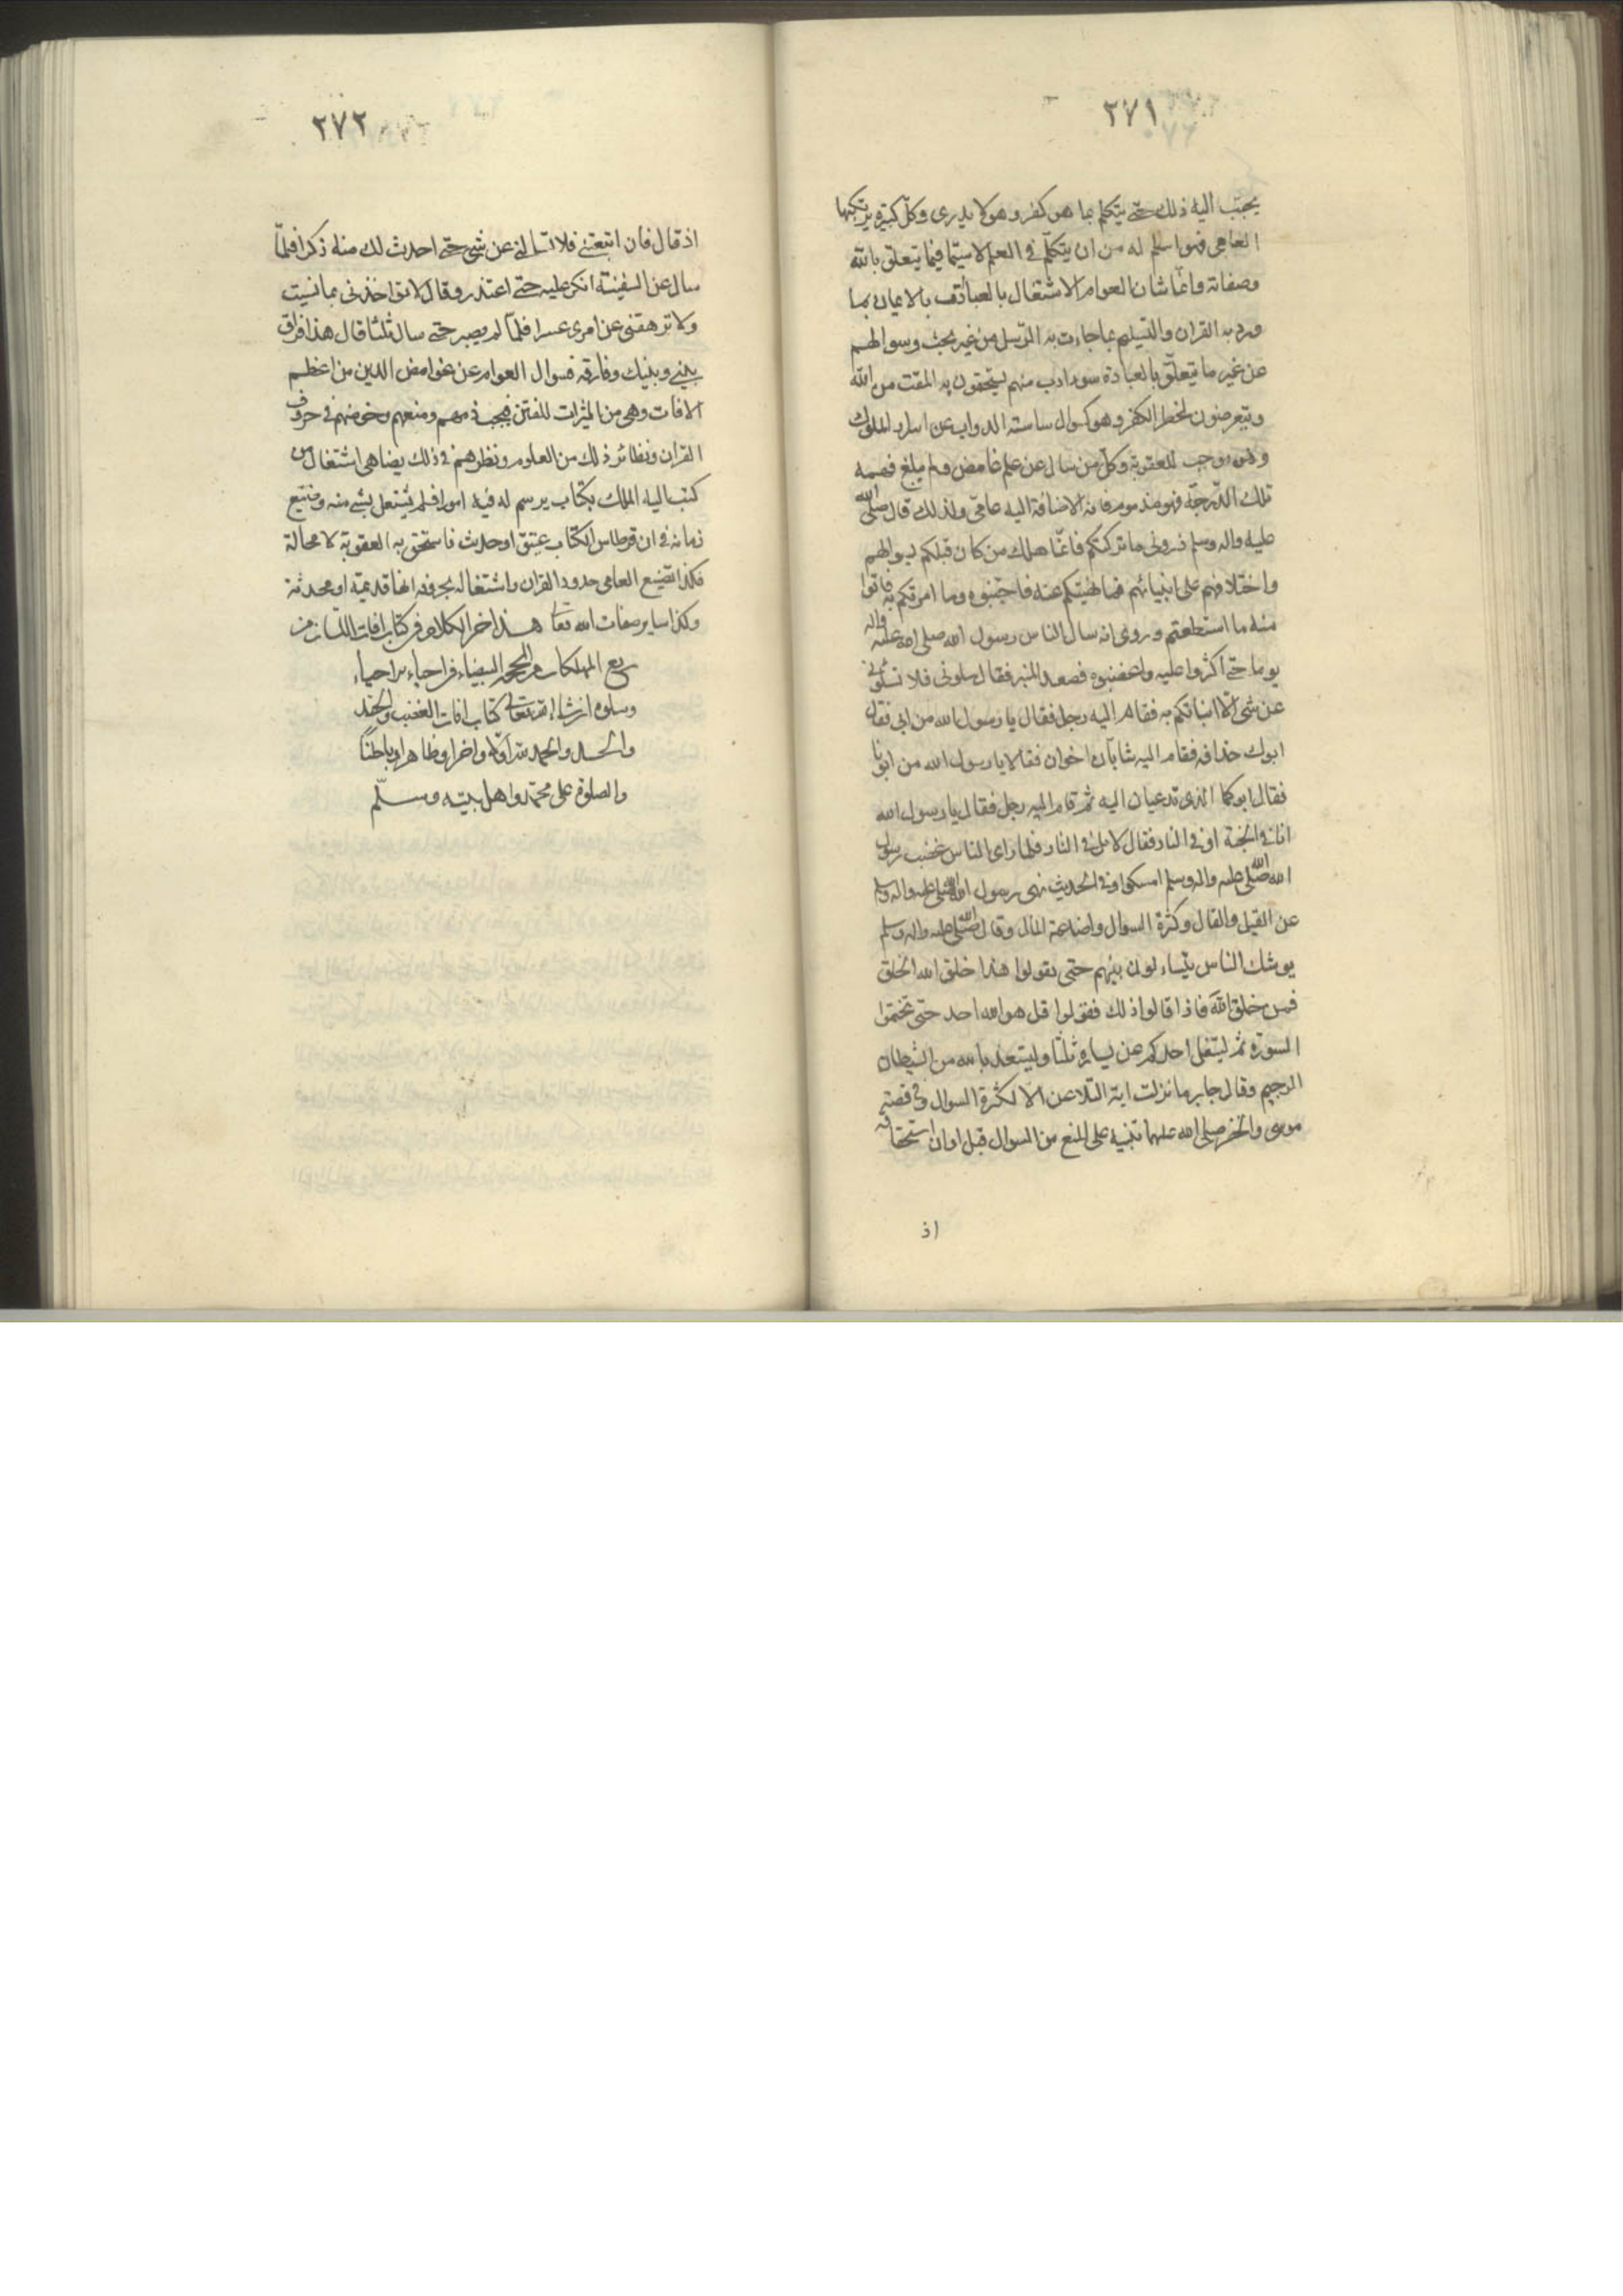 ٢٧١
يحبّب اليه ذلك حتى يتكلم بما هو كفر و هو لا يدرى وكلّ كبيرة يرتكبها
العامى فهو اسلم له من ان يتكلّم فى العلم لا سيّما فيما يتعلّق بالله
وصفاته وانّما شان العوام الاشتغال بالعبادة والايمان بما
ورد به القران والتسليم بما جاءت به الرّسل من غير بحث وسوالهم
عن غير ما يتعلّق بالعبادة سوء ادب منهم يستحقون به المقت من الله
ويتعرضون لخطر الكفر وهو كسوال ساسته الدواب عن اسرار الملوك
وهو موجب للعقوبة وكلّ من سال عن علم غامض ولم يبلغ فهمه
تلك الدّرجة فهو مذموم فانه بالاضافة اليه عامّى ولذلك قال صلى الله
عليه واله وسلم ذرونى ما تركتكم فانّما هلك من كان قبلكم بسوالهم
واختلافهم على انبيائهم فما نهيتكم عنه فاجتنبوه وما امرتكم به فاتوا
منه ما استطعتم وروى انه سال الناس رسول الله صلى الله عليه واله
يوما حتى اكثروا عليه واغضبوه فصعد المنبر فقال سلونى فلا تسئلونى
عن شى الّا انباتكم به فقام اليه رجل فقال يا رسول الله من ابى فقال
ابوك حذافه فقام اليه شابّان اخوان فقالا يا رسول الله من ابونا
فقال ابوكما الذى تدعيان اليه ثم قام اليه رجل فقال يا رسول الله
انا فى الجنة او فى النار فقال لا بل فى النار فلما راى الناس غضب رسول
الله صلى الله عليه واله وسلم امسكوا وفى الحديث نهى رسول الله صلى الله عليه واله وسلم
عن القيل والقال وكثرة السوال واضاعة المال وقال صلى الله عليه واله وسلم
يوشك الناس يتساءلون بينهم حتى يقولوا هذا خلق الله الخلق
فمن خلق اللّه فاذا قالوا ذلك فقولوا قل هو الله احد حتى تختموا
السورة ثم ليتفل احدكم عن يساره ثلثا وليستعذ بالله من الشيطان
الرجيم وقال جابر ما نزلت اية التلاعن الا لكثرة السوال وفى قصة
موسى والخضر صلى الله عليهما تنبيه على المنع من السوال قبل اوان استحقاقه
اذ
٢٧٢
اذ قال فان اتبعتنى فلا تسالنى عن شى حتى احدث لك منه ذكرا فلمّا
سال عن السفينة انكر عليه حتى اعتذر وقال لا تؤاخذنى بما نسيت
ولا ترهقنى عن امرى عسرا فلمّا لم يصبر حتى سال ثلثا قال هذا فراق
بينى وبينك وفارقه فسوال العوام عن غوامض الدين من اعظم
الافات وهى من المثيرات للفتن فيجب ومنعهم وخوضهم فى حروف
القران ونظائر ذلك من العلوم ونظرهم فى ذلك يضاهى اشتغال من
كتب اليه الملك بكتاب يرسم له فيه امورا فلم يشتغل بشى منه وضيع
زمانه فى ان قرطاس الكتاب عتيق او حديث فاستحق به العقوبة لا محالة
فكذا تضييع العامى حدود القران واشتغاله بحروفه انها قديمة او محدثة
وكذا ساير صفات الله تعالى هذا اخر الكلام فى كتاب افات اللسان من
ربع المهلكات من المحجة البيضاء فى احياء الاحياء
ويتلوه ان شاء الله تعالى كتاب افات الغضب والحقد
والحسد والحمد لله اوّلا واخرا وظاهرا وباطنًا
والصلوة على محمّد واهل بيته وسلّم